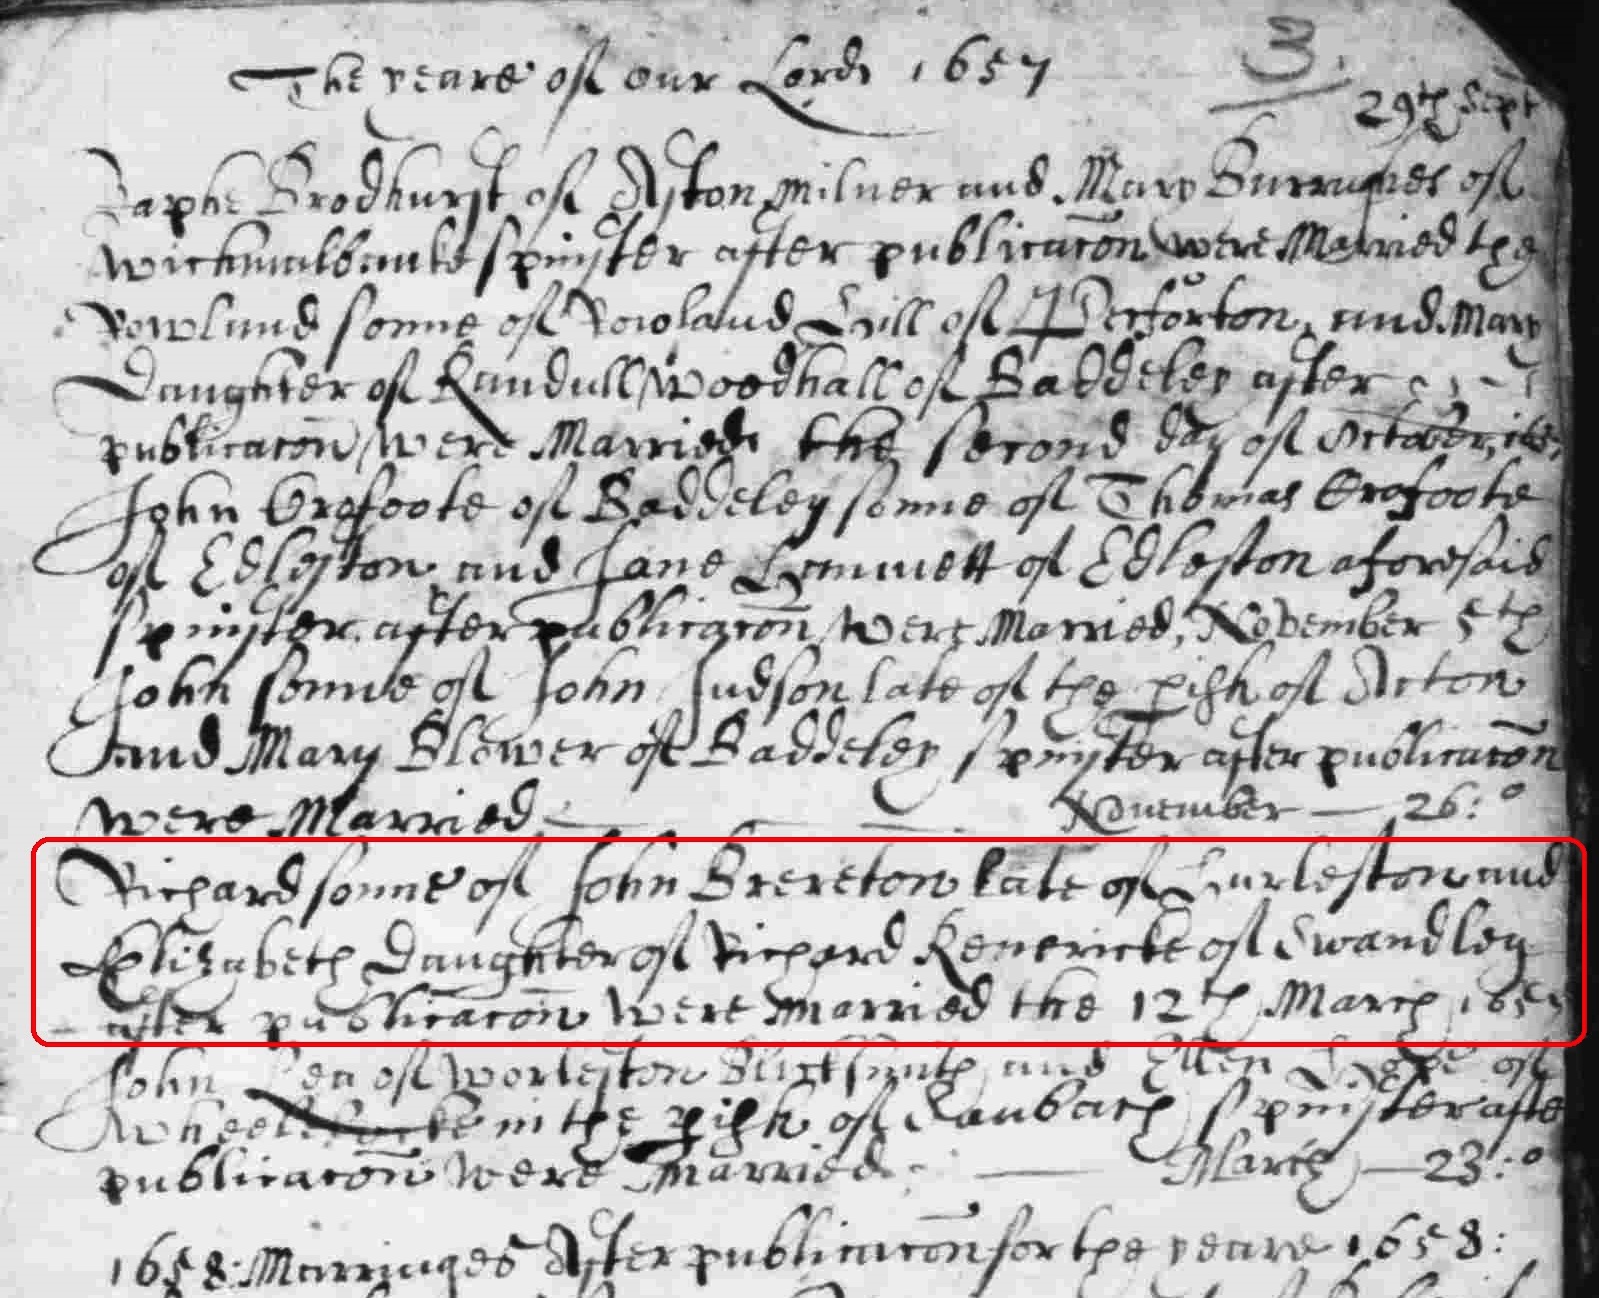 3.
The yeare of our Lorde 1657
29th Sept
Raphe Brodhurst of Aston Milner and Mary of
Wichmalbanke spinster after publicacōn were Married the
Rowland sonne of Rowland Hill of and Mary
Daughter of Randull Woodhall of Baddeley after
publicacōn were Married the second day of October,
John Crofoote of Baddeley sonne of Thomas Crofoote
of Edleston and Jane Hammett of Edleston aforesaid
spinster after publicacōn were Married, November 5th
John sonne of John Judson late of the pish of Acton
and Mary Blower of Baddeley spinster after publicacōn
were Married — November — 26:o
Richard sonne of John Brereton late of Hurleston and
Elizabeth Daughter of Richard Kenericke of Swandley
after publicacōn were married the 12th March
John Lea of Worleston Blacksmith and Ellen of
in the pish of Sanbach spinster afte
publicacōn were Married. — March — 23:o
1658: Marriages After publicacōn for the yeare 1658: